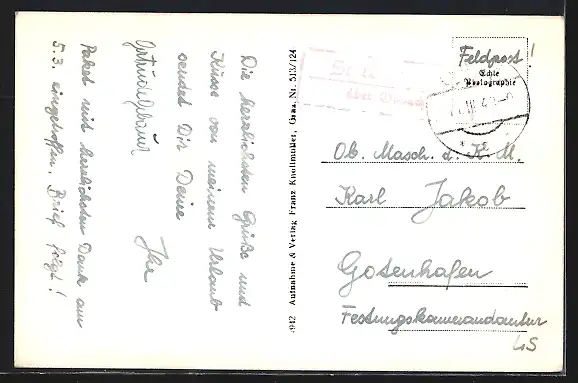 Die herzlichsten Grüße und
Küsse von meinem Urlaub
sendet Dir Deine
Ihr
Paket mit herzlichsten Dank am
5.3. eingetroffen. Brief folgt!
1942 Aufnahme & Verlag Franz Knollmüller, Nr. 513/124
Feldpost!
Echte
Photographie
über
Ob. Masch. d. K.M.
Karl Jakob
Gotenhafen
Festungskommandantur